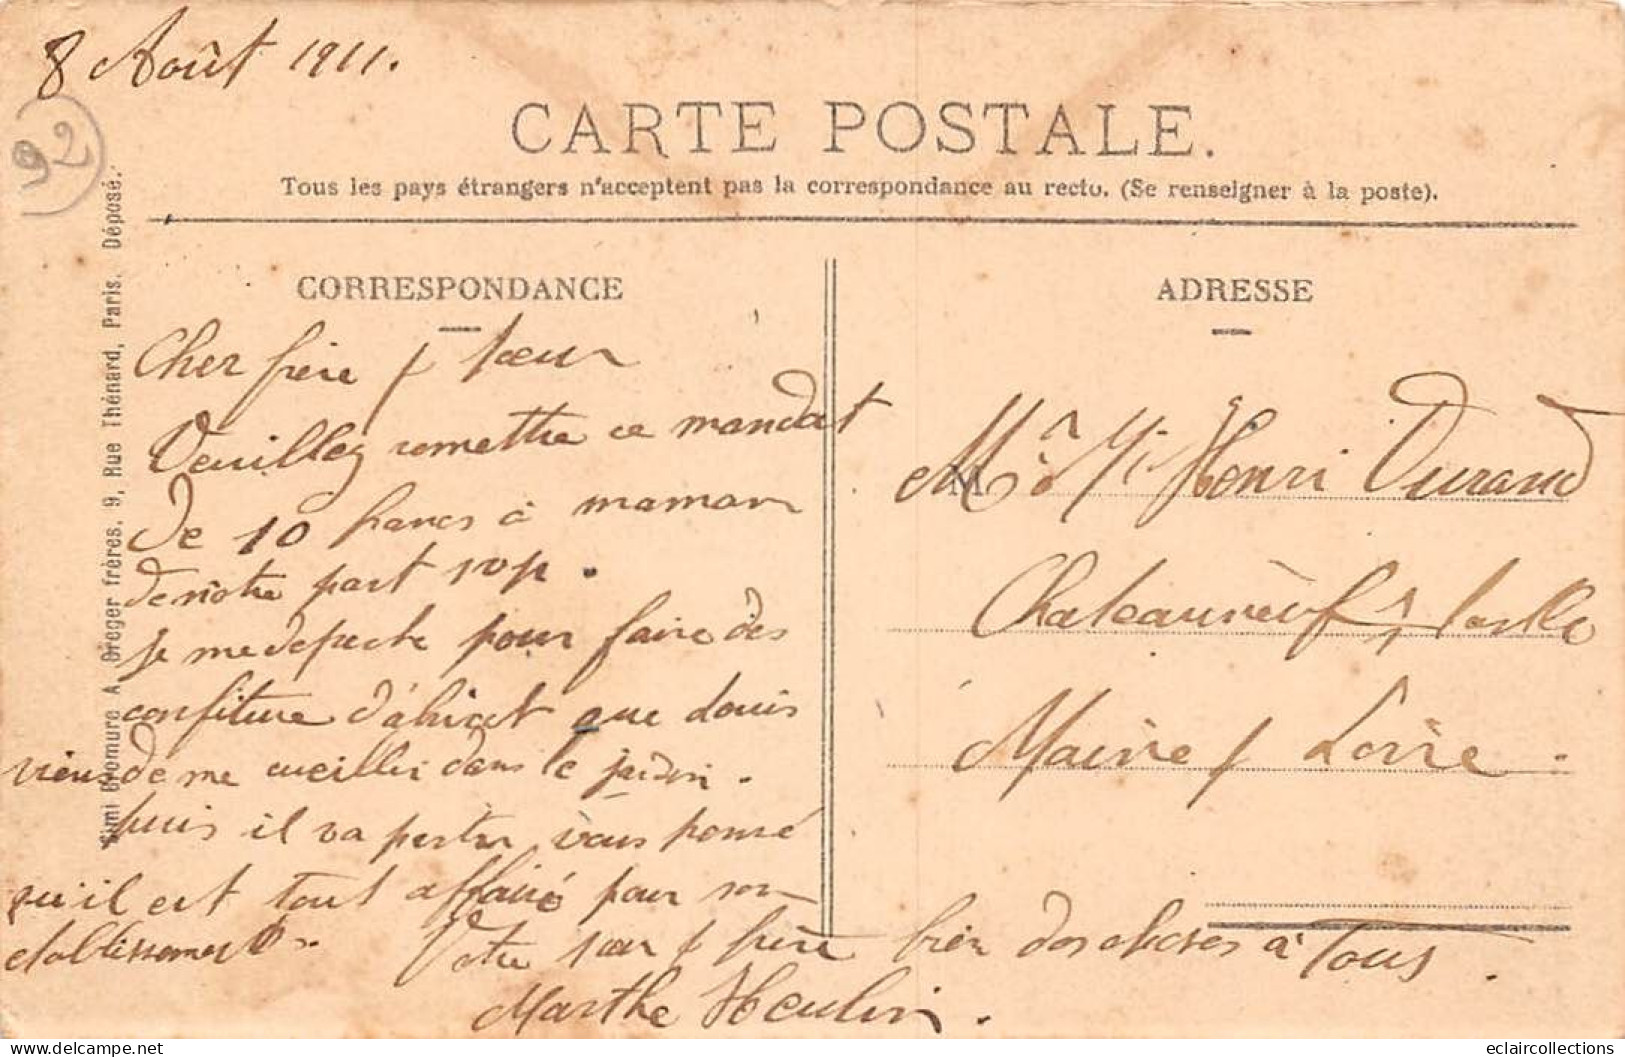 8 Août 1911.
92
CARTE POSTALE.
Tous les pays étrangers n'acceptent pas la correspondance au recto. (Se renseigner à la poste).
CORRESPONDANCE
Cher frère & sœur
Veuillez remettre ce mandat
de 10 francs à maman
de nôtre part svp.
je me depeche pour faire des
confiture d'abricot que Louis
viens de me cueillir dans le jardin.
puis il va
vous pensé
qu'il est tout affairé pour son
etablissement.
Votre sœur & frère bien des choses à Tous.
Marthe Heulin.
ADRESSE
M
Henri Durand
Chateauneuf s/ Sarthe
Maine & Loire.
Simi Bromure A. Breger frères. 9, Rue Thénard, Paris. Déposé.
© Delcampe.net
eclaircollections